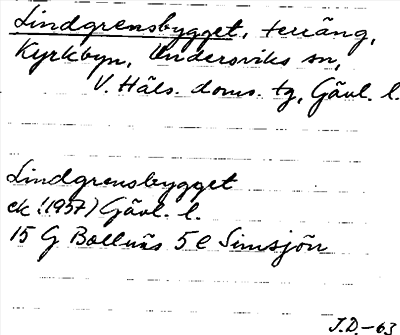 Lindgrensbygget, terräng,
Kyrkbyn, Undersviks sn,
V. Häls. doms. tg, Gävl. l.
Lindgrensbygget
ek. (1957) Gävl. l.
15 G Bollnäs 5 e Simsjön
J.D.-63